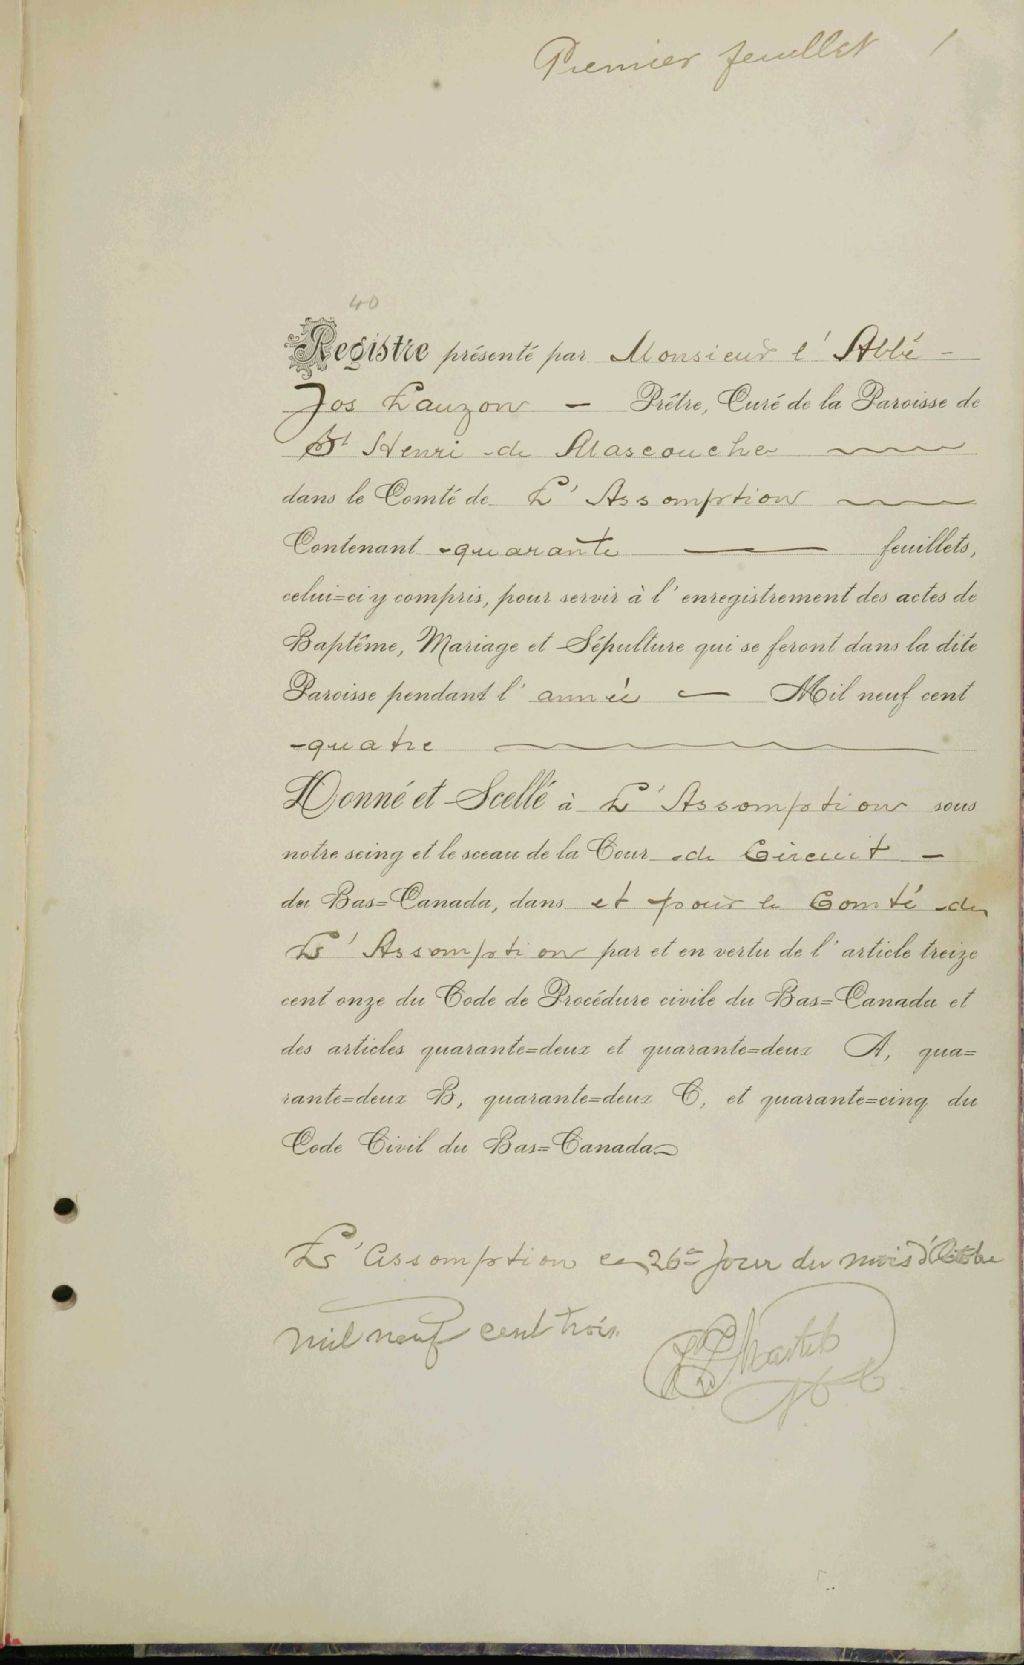 Premier feuillet 1
40
Registre présenté par Monsieur l'Abbé -
Jos Lauzon - Prêtre, Curé de la Paroisse de
St Henri de Mascouche
dans le Comté de L'Assomption
Contenant quarante — feuillets,
celui=ci y compris, pour servir à l'enregistrement des actes de
Baptême, Mariage et Sépulture qui se feront dans la dite
Paroisse pendant l'année — Mil neuf cent
quatre
Donné et Scellé à L'Assomption sous
notre seing et le sceau de la Cour de Circuit -
du Bas=Canada, dans et pour le Comté de
L'Assomption par et en vertu de l'article treize
cent onze du Code de Procédure civile du Bas=Canada et
des articles quarante=deux et quarante=deux A, qua=
rante=deux B, quarante=deux C, et quarante=cinq du
Code Civil du Bas=Canada
L'assomption ce 26e jour du mois d'Octobre
mil neuf cent trois.